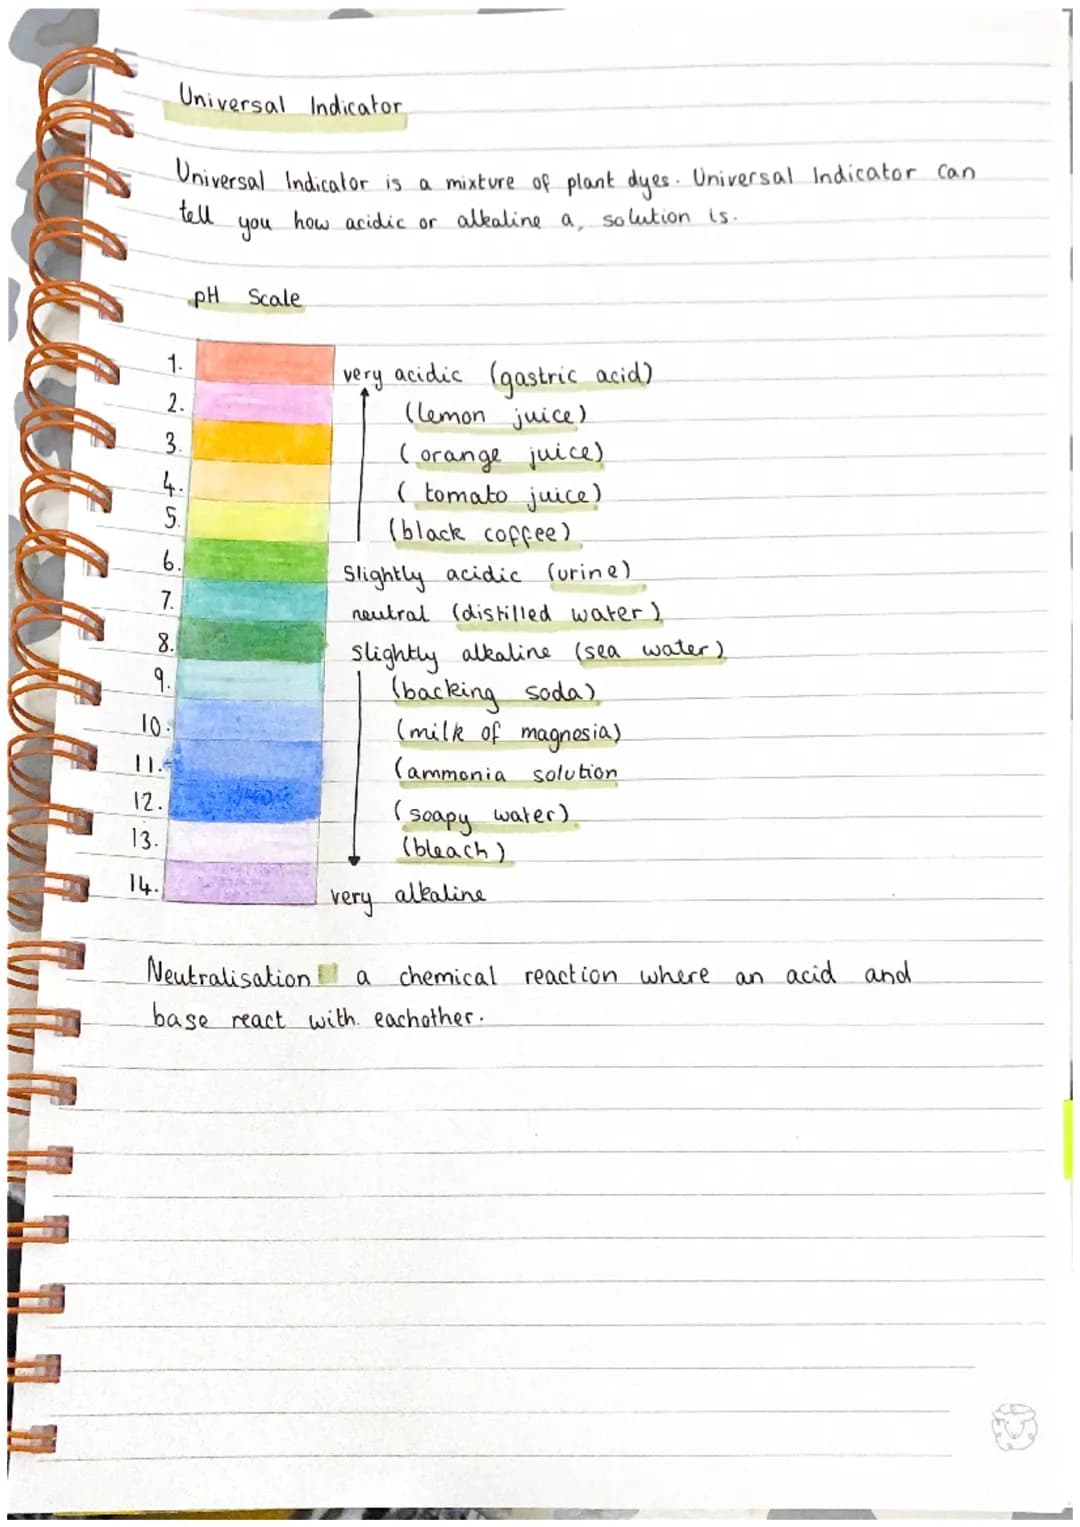 Universal Indicator
Universal Indicator is a mixture of plant dyes. Universal Indicator can
tell you how acidic or alkaline a, solution is.
pH Scale
1. very acidic (gastric acid)
2. (lemon juice)
3. (orange juice)
4. (tomato juice)
5. (black coffee)
6. Slightly acidic (urine)
7. neutral (distilled water)
8. slightly alkaline (sea water)
9. (backing soda)
10. (milk of magnesia)
11. (ammonia solution
12. (soapy water)
13. (bleach)
14. very alkaline
Neutralisation a chemical reaction where an acid and
base react with. eachother.